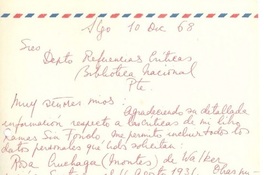 Stgo 10 Dic 68
Sres
Depto Referencias Críticas
Biblioteca Nacional
Pte.
Muy señores míos: Agradeciendo su detallada
información respecto a las críticas de mi libro
Ramas Sin Fondo, me permito incluir todos los
datos personales que Uds solicitan:
Rosa Cruchaga (Montes) de Walker
11 Agosto 1931.